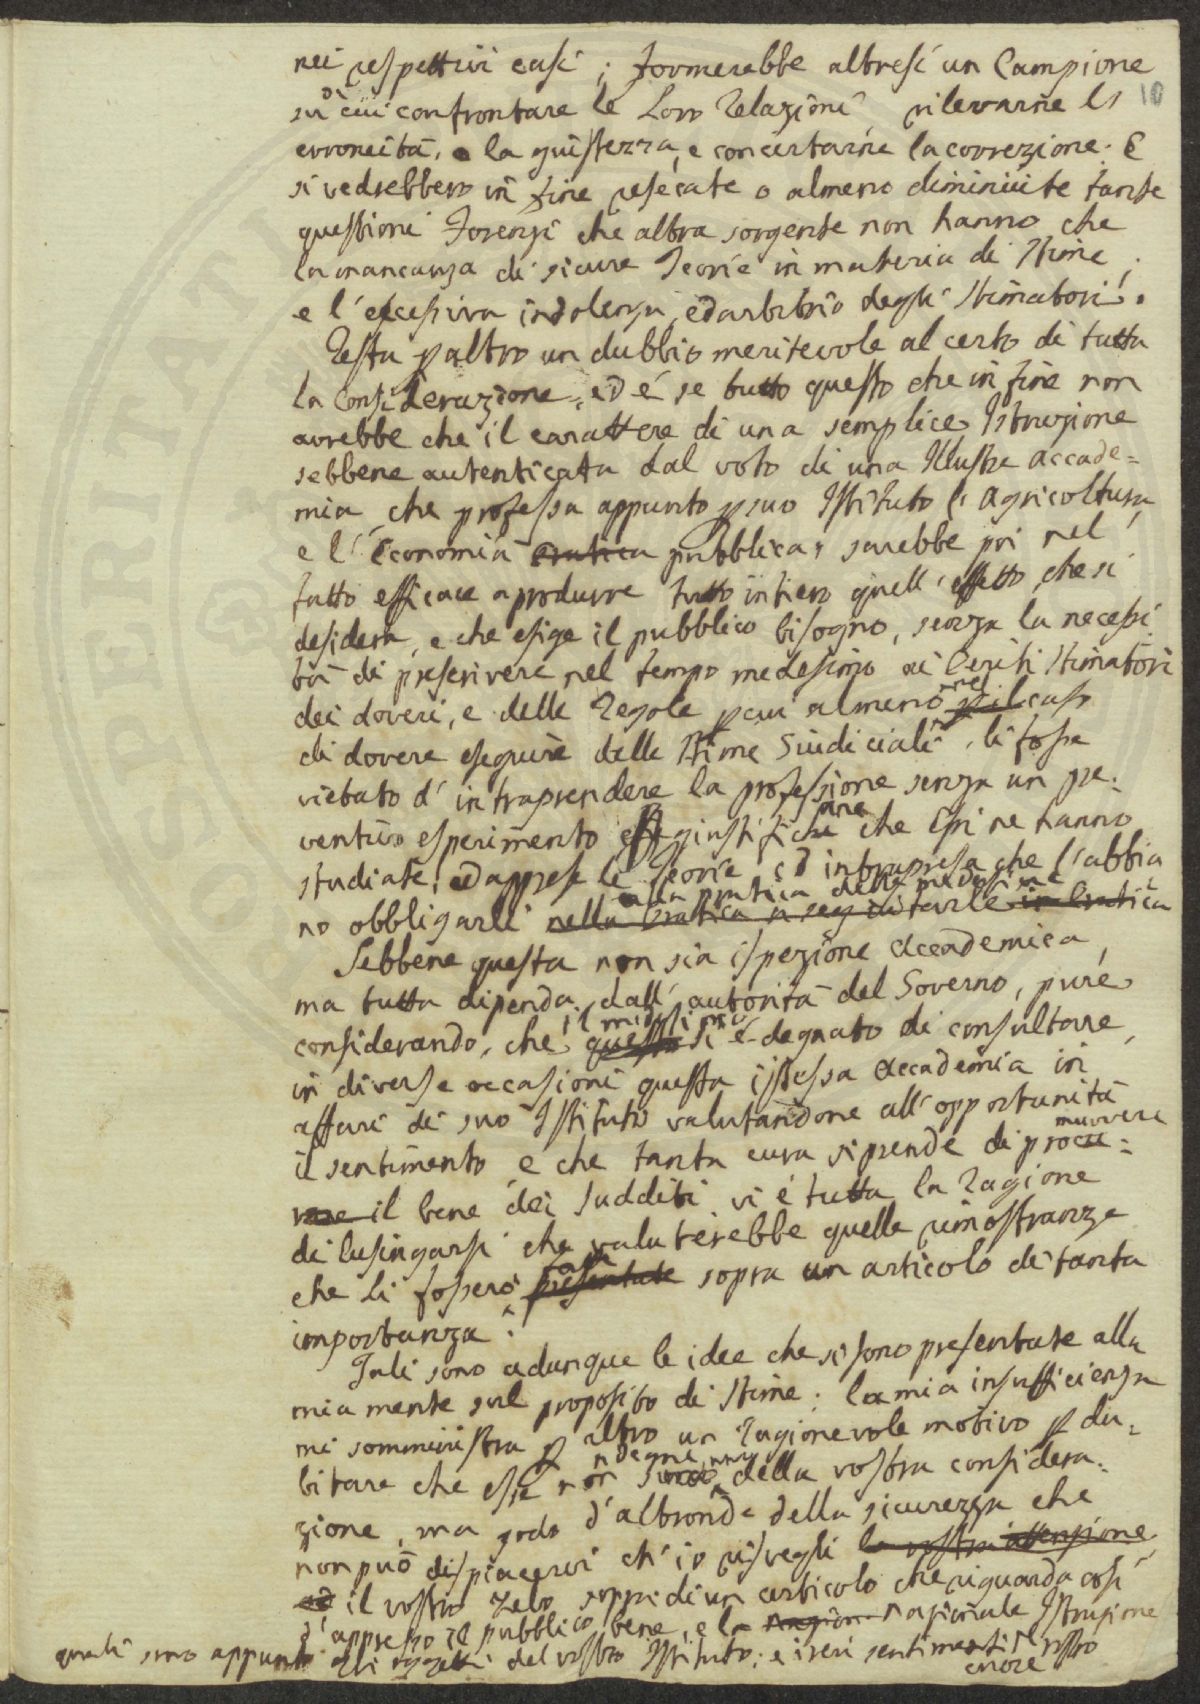 nei respettivi casi; formerebbe altresí un Campione
su di cui confrontare le Loro Relazioni rilevarne l' 10
erroneità, o la giustezza, e concertarne la correzione. E
si vedrebbero in fine resecate o almeno diminuite tante
questioni Forensi che altra sorgente non hanno che
la mancanza di sicure Teorie in materia di Stime,
e l'eccessiva indolenza, ed arbitrio degli Stimatori.
Resta p altro un dubbio meritevole al certo di tutta
la Considerazione, ed é se tutto questo che in fine non
avrebbe che il carattere di una semplice Istruzione
sebbene autenticata dal voto di una Illustre Accade=
mia, che professa appunto p suo Istituto l'Agricoltura
e l'Economia pratica pubblica, sarebbe poi nel
fatto efficace a produrre tutto intiero quell'effetto, che si
desidera, e che esige il pubblico bisogno, senza la necessi
tà di prescrivere nel tempo medesimo ai Periti Stimatori
dei doveri, e delle Regole p cui almeno nel p il caso
di dovere eseguire delle Stime Giudiciali, li fosse
vietato d'intraprendere la professione senza un pre=
ventivo esperimento giustificare che Essi ne hanno
studiate, ed apprese le Teorie, ed intrapresa che l'abbia
no obbligarli alla pratica delle medesime nella Pratica a seguitarle in Pratica
Sebbene questa non sia ispezione Accademica,
ma tutta dipenda dall'autorità del Governo, pure
considerando, che il medesimo questo si é degnato di consultare,
in diverse occasioni questa istessa Accademia in
affari di suo Istituto valutandone all'opportunità
il sentimento e che tanta cura si prende di promuovere procu=
rare il bene dei Sudditi vi é tutta la Ragione
di lusingarsi che valuterebbe quelle rimostranze
che li fossero fatte presentate sopra un articolo di tanta
importanza.
Tali sono adunque le idee che si sono presentate alla
mia mente sul proposito di Stime; la mia insufficienza
mi somministra p altro un ragionevole motivo p du=
bitare che esse non degne della vostra considera=
zione, ma godo d'altronde della sicurezza che
non può dispiacervi ch'io risvegli la vostra attenzione
ed il vostro zelo sopra di un articolo che riguarda così
d'appresso il pubblico bene, e la nazionale Istruzione
quali sono appunto gli oggetti del vostro Istituto; e i veri sentimenti del vostro
cuore